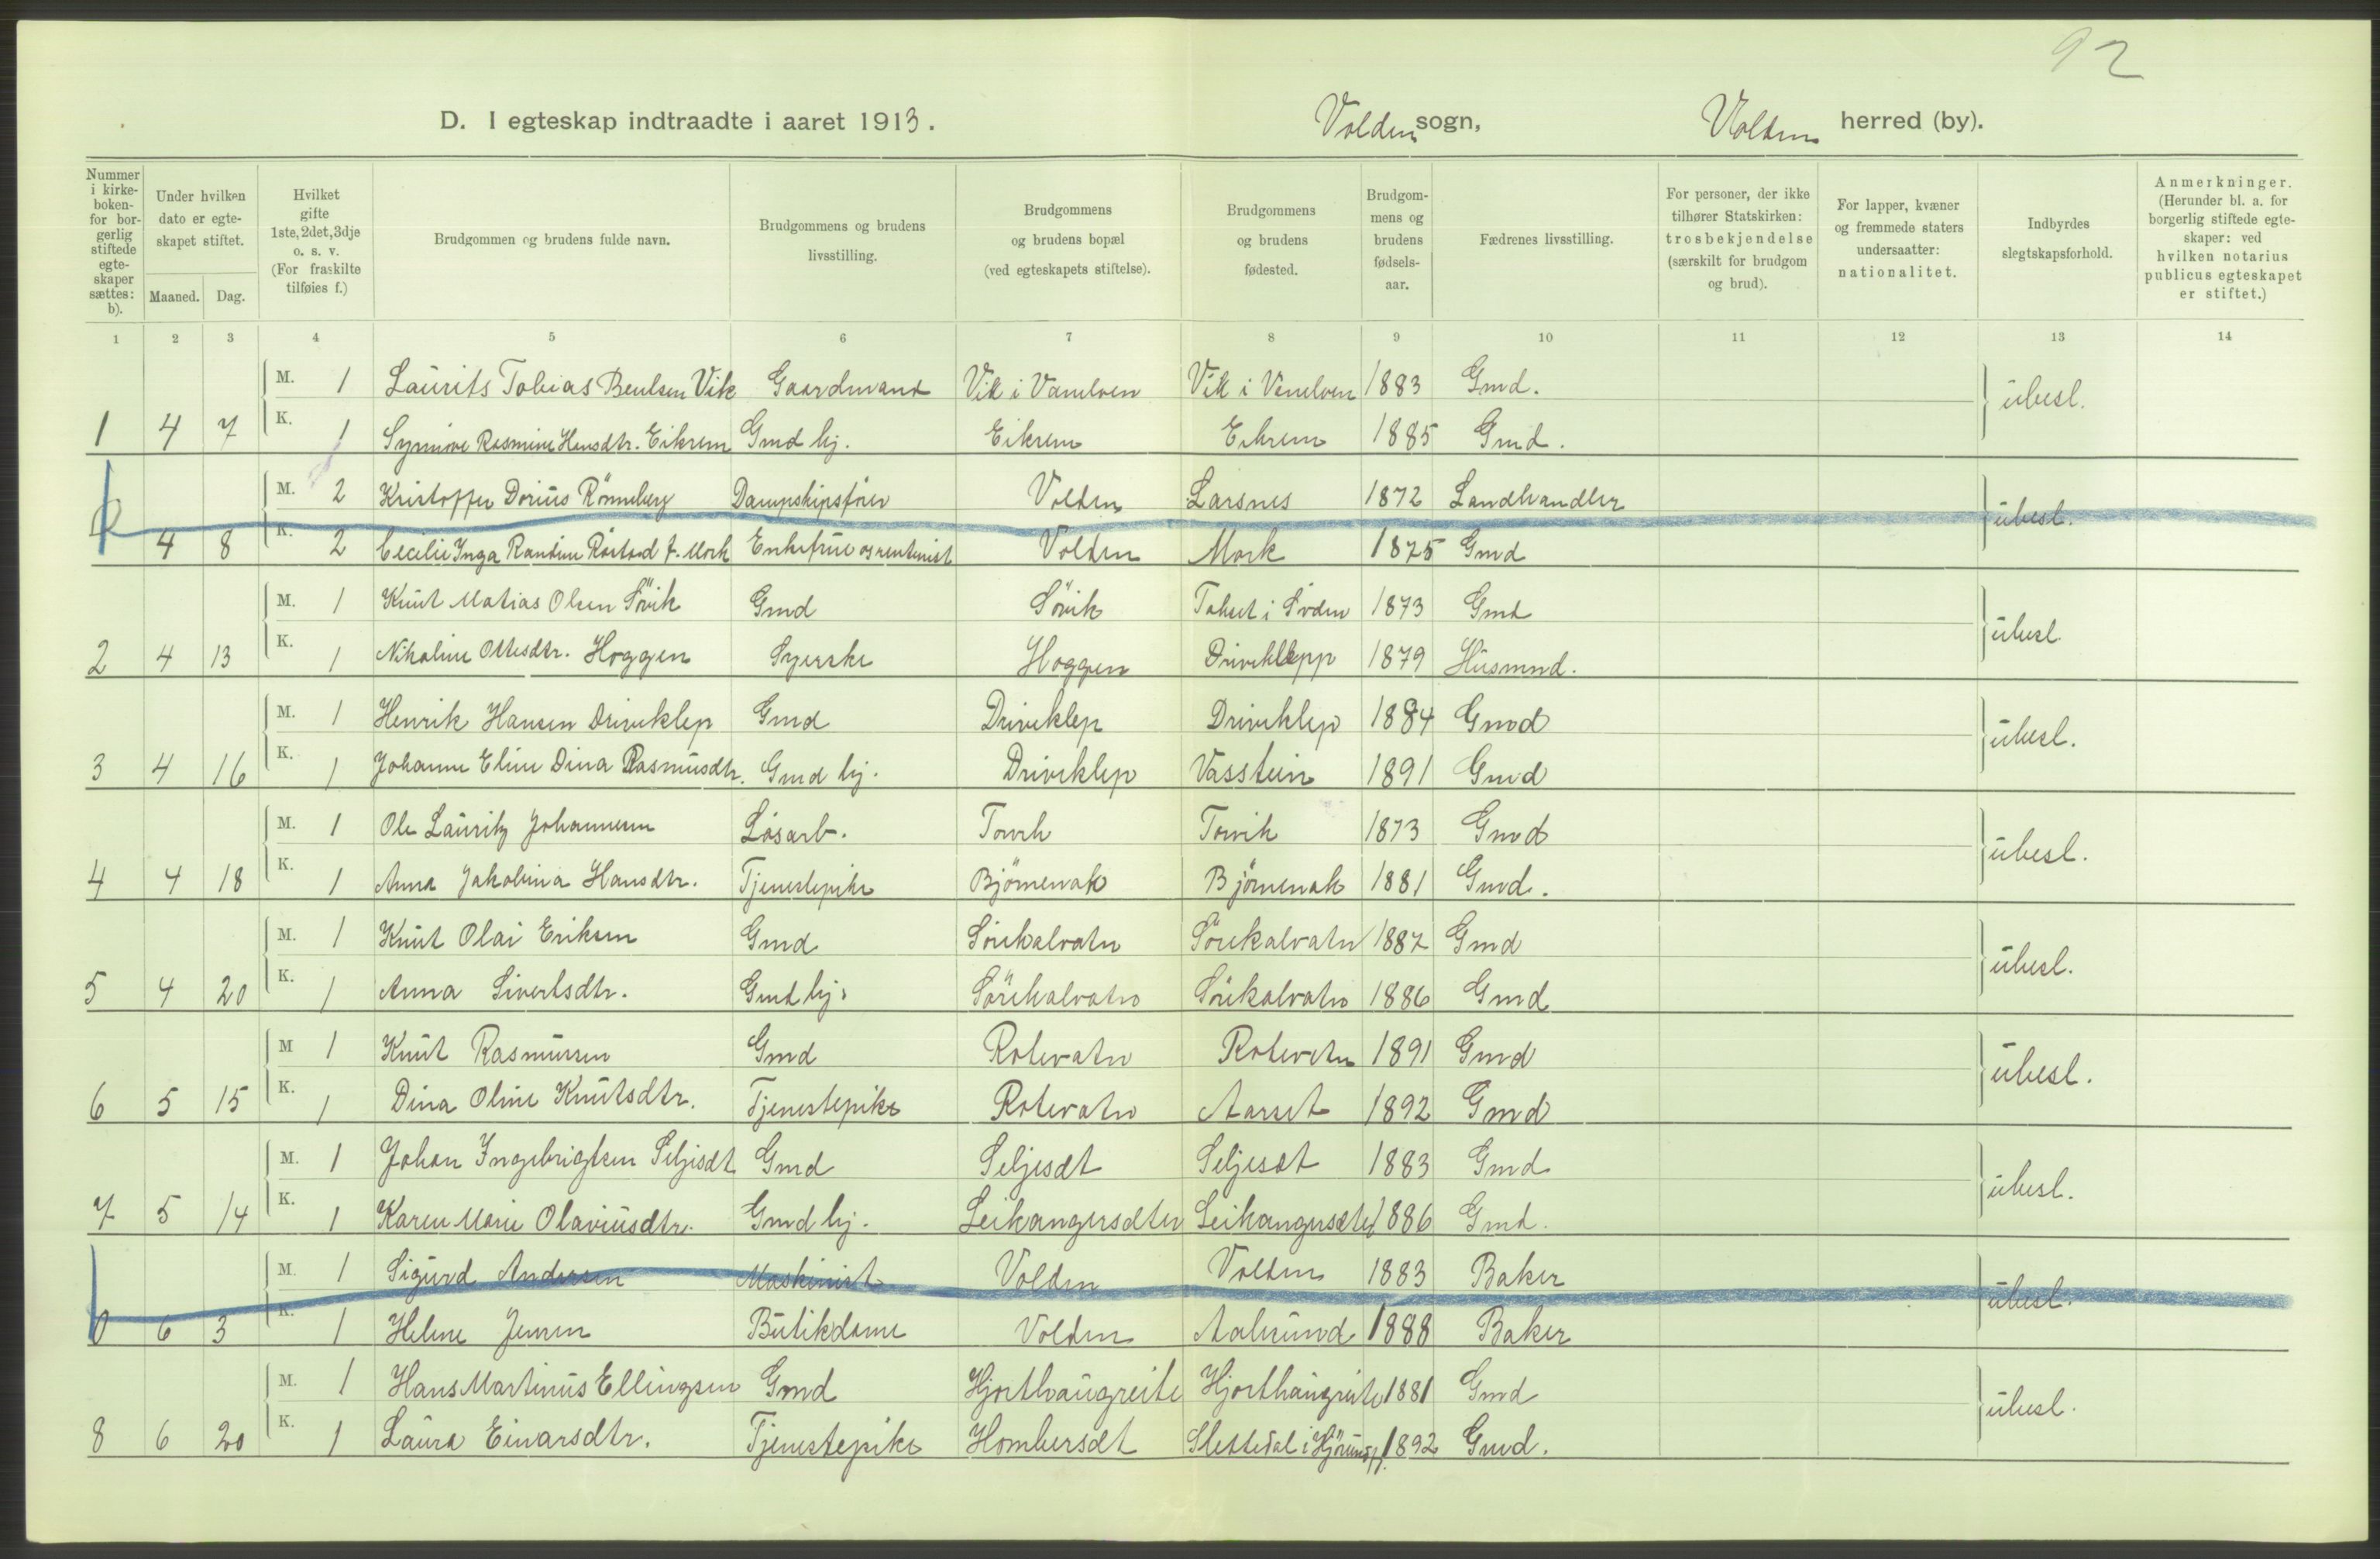 92
D. I egteskap indtraadte i aaret 1913. Volden sogn, Volden herred (by).
Nummer i kirke- boken- for bor- gerlig stiftede egte- skaper sættes: b).
Under hvilken dato er egte- skapet stiftet.
Maaned. Dag.
Hvilket gifte 1ste, 2det, 3dje o. s. v. (For fraskilte tilføies f.)
Brudgommen og brudens fulde navn.
Brudgommens og brudens livsstilling.
Brudgommens og brudens bopæl (ved egteskapets stiftelse).
Brudgommens og brudens fødested.
Brudgom- mens og brudens fødsels- aar.
Fædrenes livsstilling.
For personer, der ikke tilhører Statskirken: trosbekjendelse (særskilt for brudgom og brud).
For lapper, kvæner og fremmede staters undersaatter: nationalitet.
Indbyrdes slegtskapsforhold.
Anmerkninger. (Herunder bl. a. for borgerlig stiftede egte- skaper: ved hvilken notarius publicus egteskapet er stiftet.)
1 2 3 4 5 6 7 8 9 10 11 12 13 14
M. 1 Laurits Tobias Bentsen Vik Gaardmand Vik i Vanelven Vik i Vanelven 1883 Gmd. ubesl.
1 4 7 K. 1 Synnöve Rasmine Hansdtr. Eikrem Gmd hj. Eikrem Eikrem 1885 Gmd.
M. 2 Kristoffer Dorius Rönneberg Dampskipsfører Volden Larsnes 1872 Landhandler ubesl.
4 8 K. 2 Cecilie Inga Randine Röstad f. Mork Enkefrue og rentenist Volden Mork 1875 Gmd
M. 1 Knut Matias Olsen Sövik Gmd Sövik i Syvden 1873 Gmd ubesl
2 4 13 K. 1 Nikoline Ottesdtr. Hoggen Syerske Hoggen Driveklepp 1879 Husmnd.
M. 1 Henrik Hansen Driveklep Gmd Driveklep Driveklep 1884 Gmd ubesl.
3 4 16 K. 1 Johanne Eline Dina Rasmusdtr. Gmd hj. Driveklep Vasstein 1891 Gmd
M. 1 Ole Lauritz Johannesen Lösarb. Torvik Torvik 1873 Gmd ubesl.
4 4 18 K. 1 Anna Jakobina Hansdtr. Tjenestepike Björnenak Björnenak 1881 Gmd.
M. 1 Knut Olai Eriksen Gmd Sörekalvatn Sörekalvatn 1887 Gmd ubesl.
5 4 20 K. 1 Anna Sivertsdtr. Gmd hj. Sörekalvatn Sörekalvatn 1886 Gmd
M 1 Knut Rasmussen Gmd Rotevatn Rotevatn 1891 Gmd ubesl.
6 5 15 K. 1 Dina Oline Knutsdtr. Tjenestepike Rotevatn Aarset 1892 Gmd
M. 1 Johan Ingebrigtsen Seljesæt Gmd Seljesæt Seljesæt 1883 Gmd ubesl.
7 5 14 K. 1 Karen Marie Olaviusdtr. Gmd hj. Leikangersæter Leikangersæter 1886 Gmd.
M. 1 Sigurd Andersen Maskinist Volden Volden 1883 Baker ubesl.
0 6 3 K. 1 Helene Jensen Butikdame Volden Aalesund 1888 Baker
M. 1 Hans Martinus Ellingsen Gmd Hjorthaugreite Hjorthaugreite 1881 Gmd ubesl.
8 6 20 K. 1 Laura Einarsdtr. Tjenestepike Hombersæt Slettedal i Hjörundfj. 1892 Gmd.